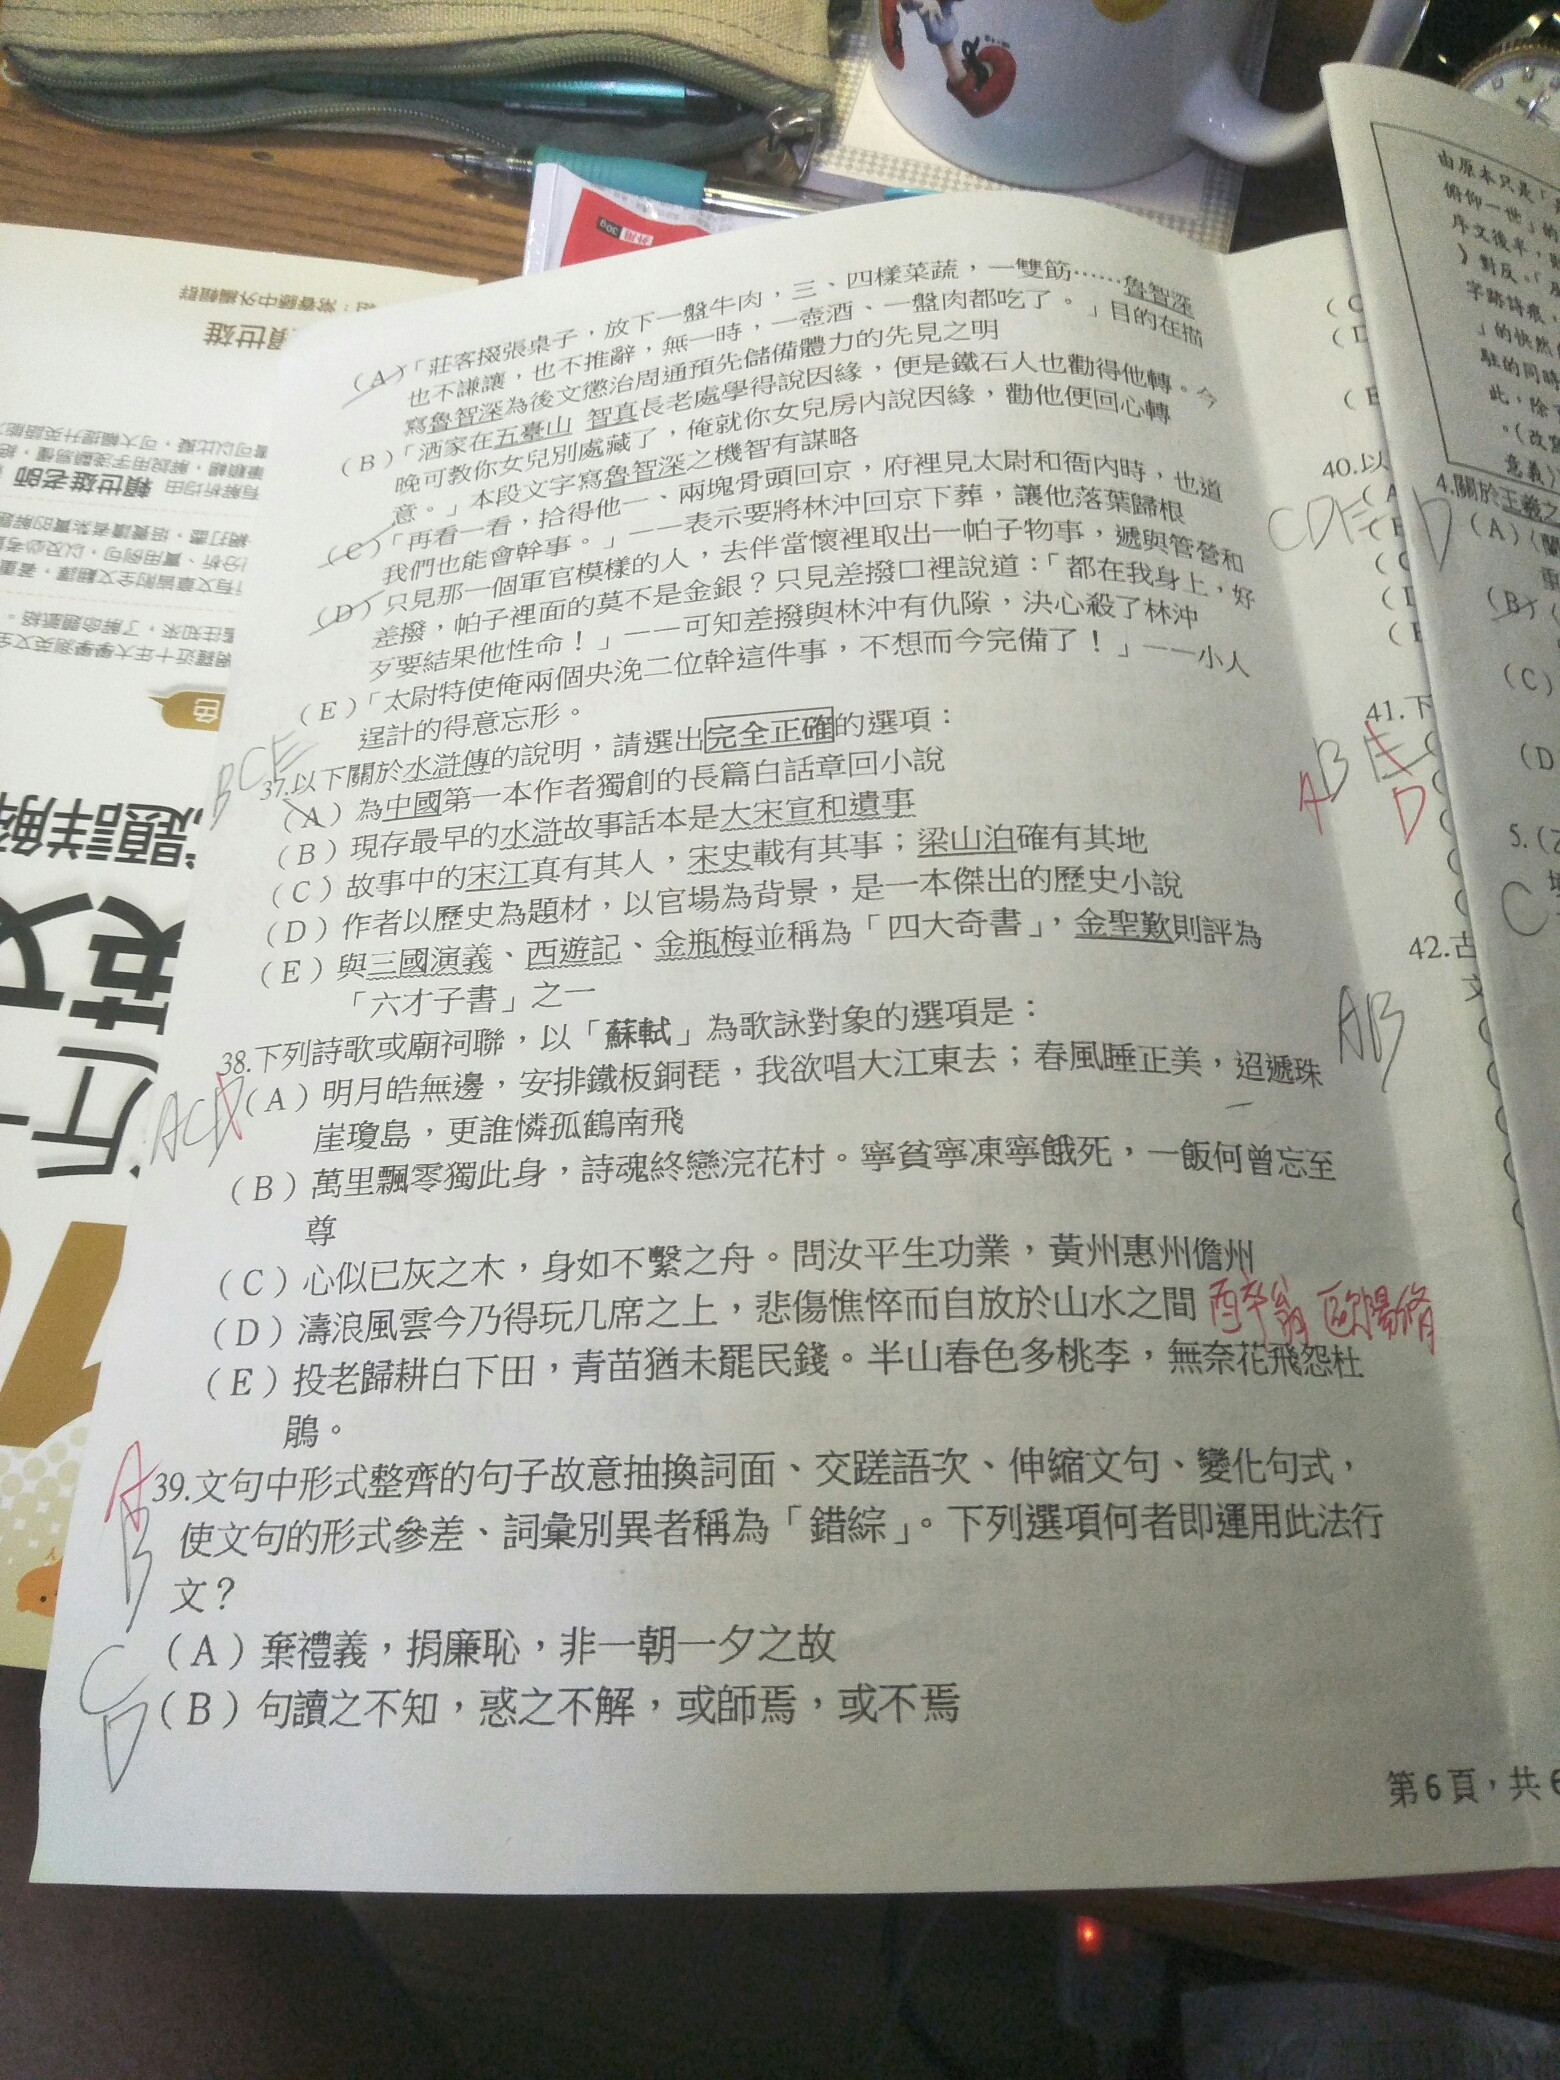 (A)「莊客掇張桌子，放下一盤牛肉，三、四樣菜蔬，一雙筯……魯智深
也不謙讓，也不推辭，無一時，一壺酒、一盤肉都吃了。」目的在描
寫魯智深為後文懲治周通預先儲備體力的先見之明
(B)「洒家在五臺山 智真長老處學得說因緣，便是鐵石人也勸得他轉。今
晚可教你女兒別處藏了，俺就你女兒房內說因緣，勸他便回心轉
意。」本段文字寫魯智深之機智有謀略
(C)「再看一看，拾得他一、兩塊骨頭回京，府裡見太尉和衙內時，也道
我們也能會幹事。」——表示要將林沖回京下葬，讓他落葉歸根
(D)只見那一個軍官模樣的人，去伴當懷裡取出一帕子物事，遞與管營和
差撥，帕子裡面的莫不是金銀？只見差撥口裡說道：「都在我身上，好
歹要結果他性命！」——可知差撥與林沖有仇隙，決心殺了林沖
(E)「太尉特使俺兩個央浼二位幹這件事，不想而今完備了！」——小人
逞計的得意忘形。
BCE
37.以下關於水滸傳的說明，請選出完全正確的選項：
(A)為中國第一本作者獨創的長篇白話章回小說
(B)現存最早的水滸故事話本是大宋宣和遺事
(C)故事中的宋江真有其人，宋史載有其事；梁山泊確有其地
(D)作者以歷史為題材，以官場為背景，是一本傑出的歷史小說
(E)與三國演義、西遊記、金瓶梅並稱為「四大奇書」，金聖歎則評為
「六才子書」之一
38.下列詩歌或廟祠聯，以「蘇軾」為歌詠對象的選項是：
(A)明月皓無邊，安排鐵板銅琵，我欲唱大江東去；春風睡正美，迢遞珠
崖瓊島，更誰憐孤鶴南飛
(B)萬里飄零獨此身，詩魂終戀浣花村。寧貧寧凍寧餓死，一飯何曾忘至
尊
(C)心似已灰之木，身如不繫之舟。問汝平生功業，黃州惠州儋州
(D)濤浪風雲今乃得玩几席之上，悲傷憔悴而自放於山水之間 醉翁 歐陽脩
(E)投老歸耕白下田，青苗猶未罷民錢。半山春色多桃李，無奈花飛怨杜
鵑。
A
B
C
D
39.文句中形式整齊的句子故意抽換詞面、交蹉語次、伸縮文句、變化句式，
使文句的形式參差、詞彙別異者稱為「錯綜」。下列選項何者即運用此法行
文？
(A)棄禮義，捐廉恥，非一朝一夕之故
(B)句讀之不知，惑之不解，或師焉，或不焉
第6頁，共6
40.以
41.下
AB
D
42.古
AB
由原本只是「
俯仰一世」的
序文後半，
)對反。「
字跡詩痕，
」的快然
駐的同時
此，除
。(改寫
意義)
4.關於王羲之
(A)
(B)
(C)
(D
5.(
C
賴世雄老師